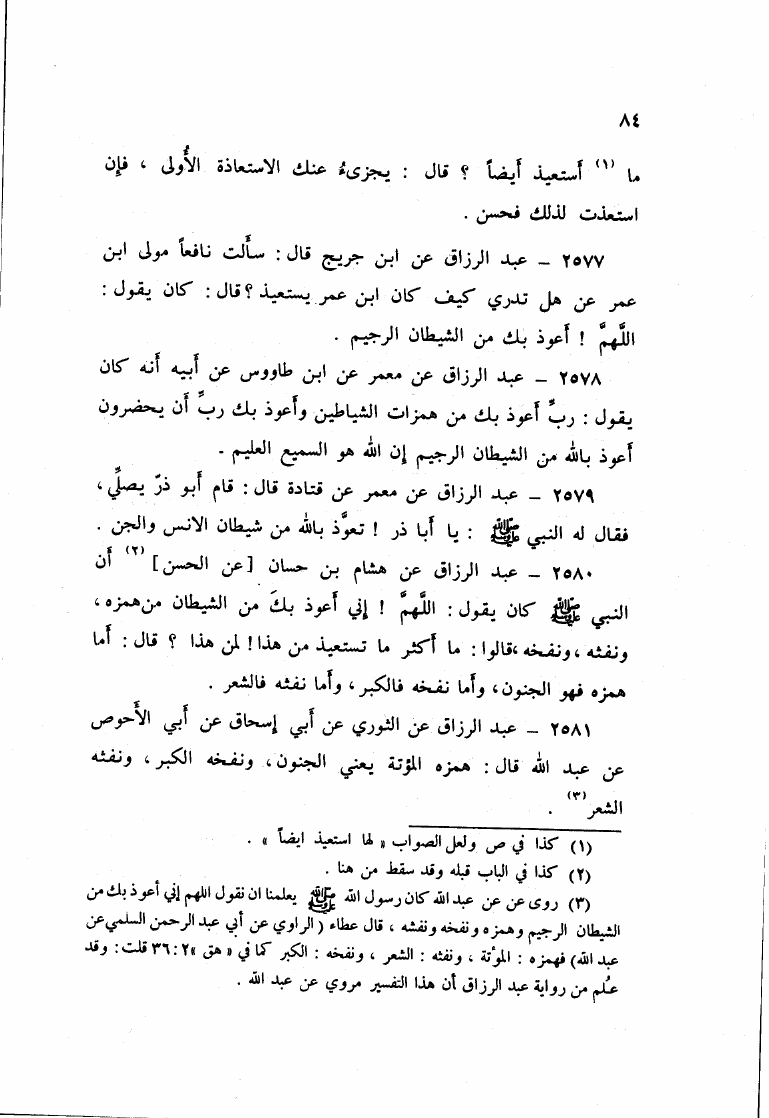 ٨٤
ما (١) أستعيذ أيضاً ؟ قال : يجزىءُ عنك الاستعاذة الأُولى ، فإن
استعذت لذلك فحسن .
٢٥٧٧ – عبد الرزاق عن ابن جريج قال : سأَلت نافعاً مولى ابن
عمر عن هل تدري كيف كان ابن عمر يستعيذ ؟ قال : كان يقول :
اللَّهمَّ ! أعوذ بك من الشيطان الرجيم .
٢٥٧٨ – عبد الرزاق عن معمر عن ابن طاووس عن أبيه أنه كان
يقول : ربِّ أعوذ بك من همزات الشياطين وأعوذ بك ربِّ أن يحضرون
أعوذ بالله من الشيطان الرجيم إن الله هو السميع العليم .
٢٥٧٩ – عبد الرزاق عن معمر عن قتادة قال : قام أبو ذرّ يصلِّي ،
فقال له النبي ﷺ : يا أبا ذر ! تعوَّذ بالله من شيطان الانس والجن .
٢٥٨٠ – عبد الرزاق عن هشام بن حسان [عن الحسن] (٢) أن
النبي ﷺ كان يقول : اللَّهمَّ ! إني أعوذ بكَ من الشيطان من همزه ،
ونفثه ، ونفخه ، قالوا : ما أكثر ما تستعيذ من هذا ! لمن هذا ؟ قال : أما
همزه فهو الجنون ، وأما نفخه فالكبر ، وأما نفثه فالشعر .
٢٥٨١ – عبد الرزاق عن الثوري عن أبي إسحاق عن أبي الأَحوص
عن عبد الله قال : همزه المؤتة يعني الجنون ، ونفخه الكبر ، ونفثه
الشعر (٣) .
(١) كذا في ص ولعل الصواب « لها استعيذ ايضاً » .
(٢) كذا في الباب قبله وقد سقط من هنا .
(٣) روى عن عن عبد الله كان رسول الله ﷺ يعلمنا ان نقول اللهم إني أعوذ بك من
الشيطان الرجيم وهمزه ونفخه ونفثه ، قال عطاء ( الراوي عن أبي عبد الرحمن السلمي عن
عبد الله) فهمزه : المؤتة ، ونفثه : الشعر ، ونفخه : الكبر كما في « هق » ٢ : ٣٦ قلت : وقد
عُلم من رواية عبد الرزاق أن هذا التفسير مروي عن عبد الله .